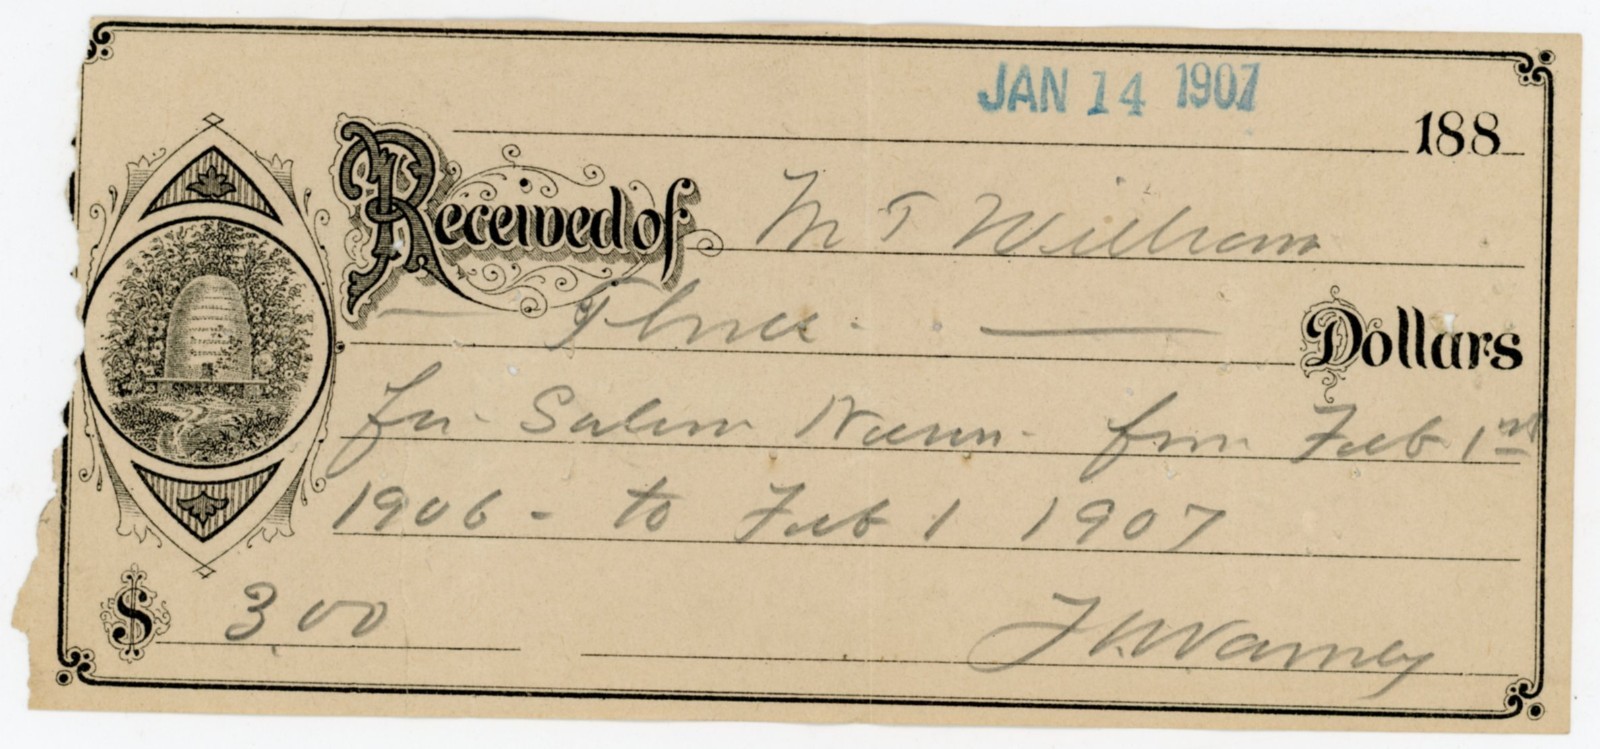 JAN 14 1907
188
Received of M T William
Three Dollars
for Salem News from Feb 1st
1906 - to Feb 1 1907
$ 3.00
F W Varney